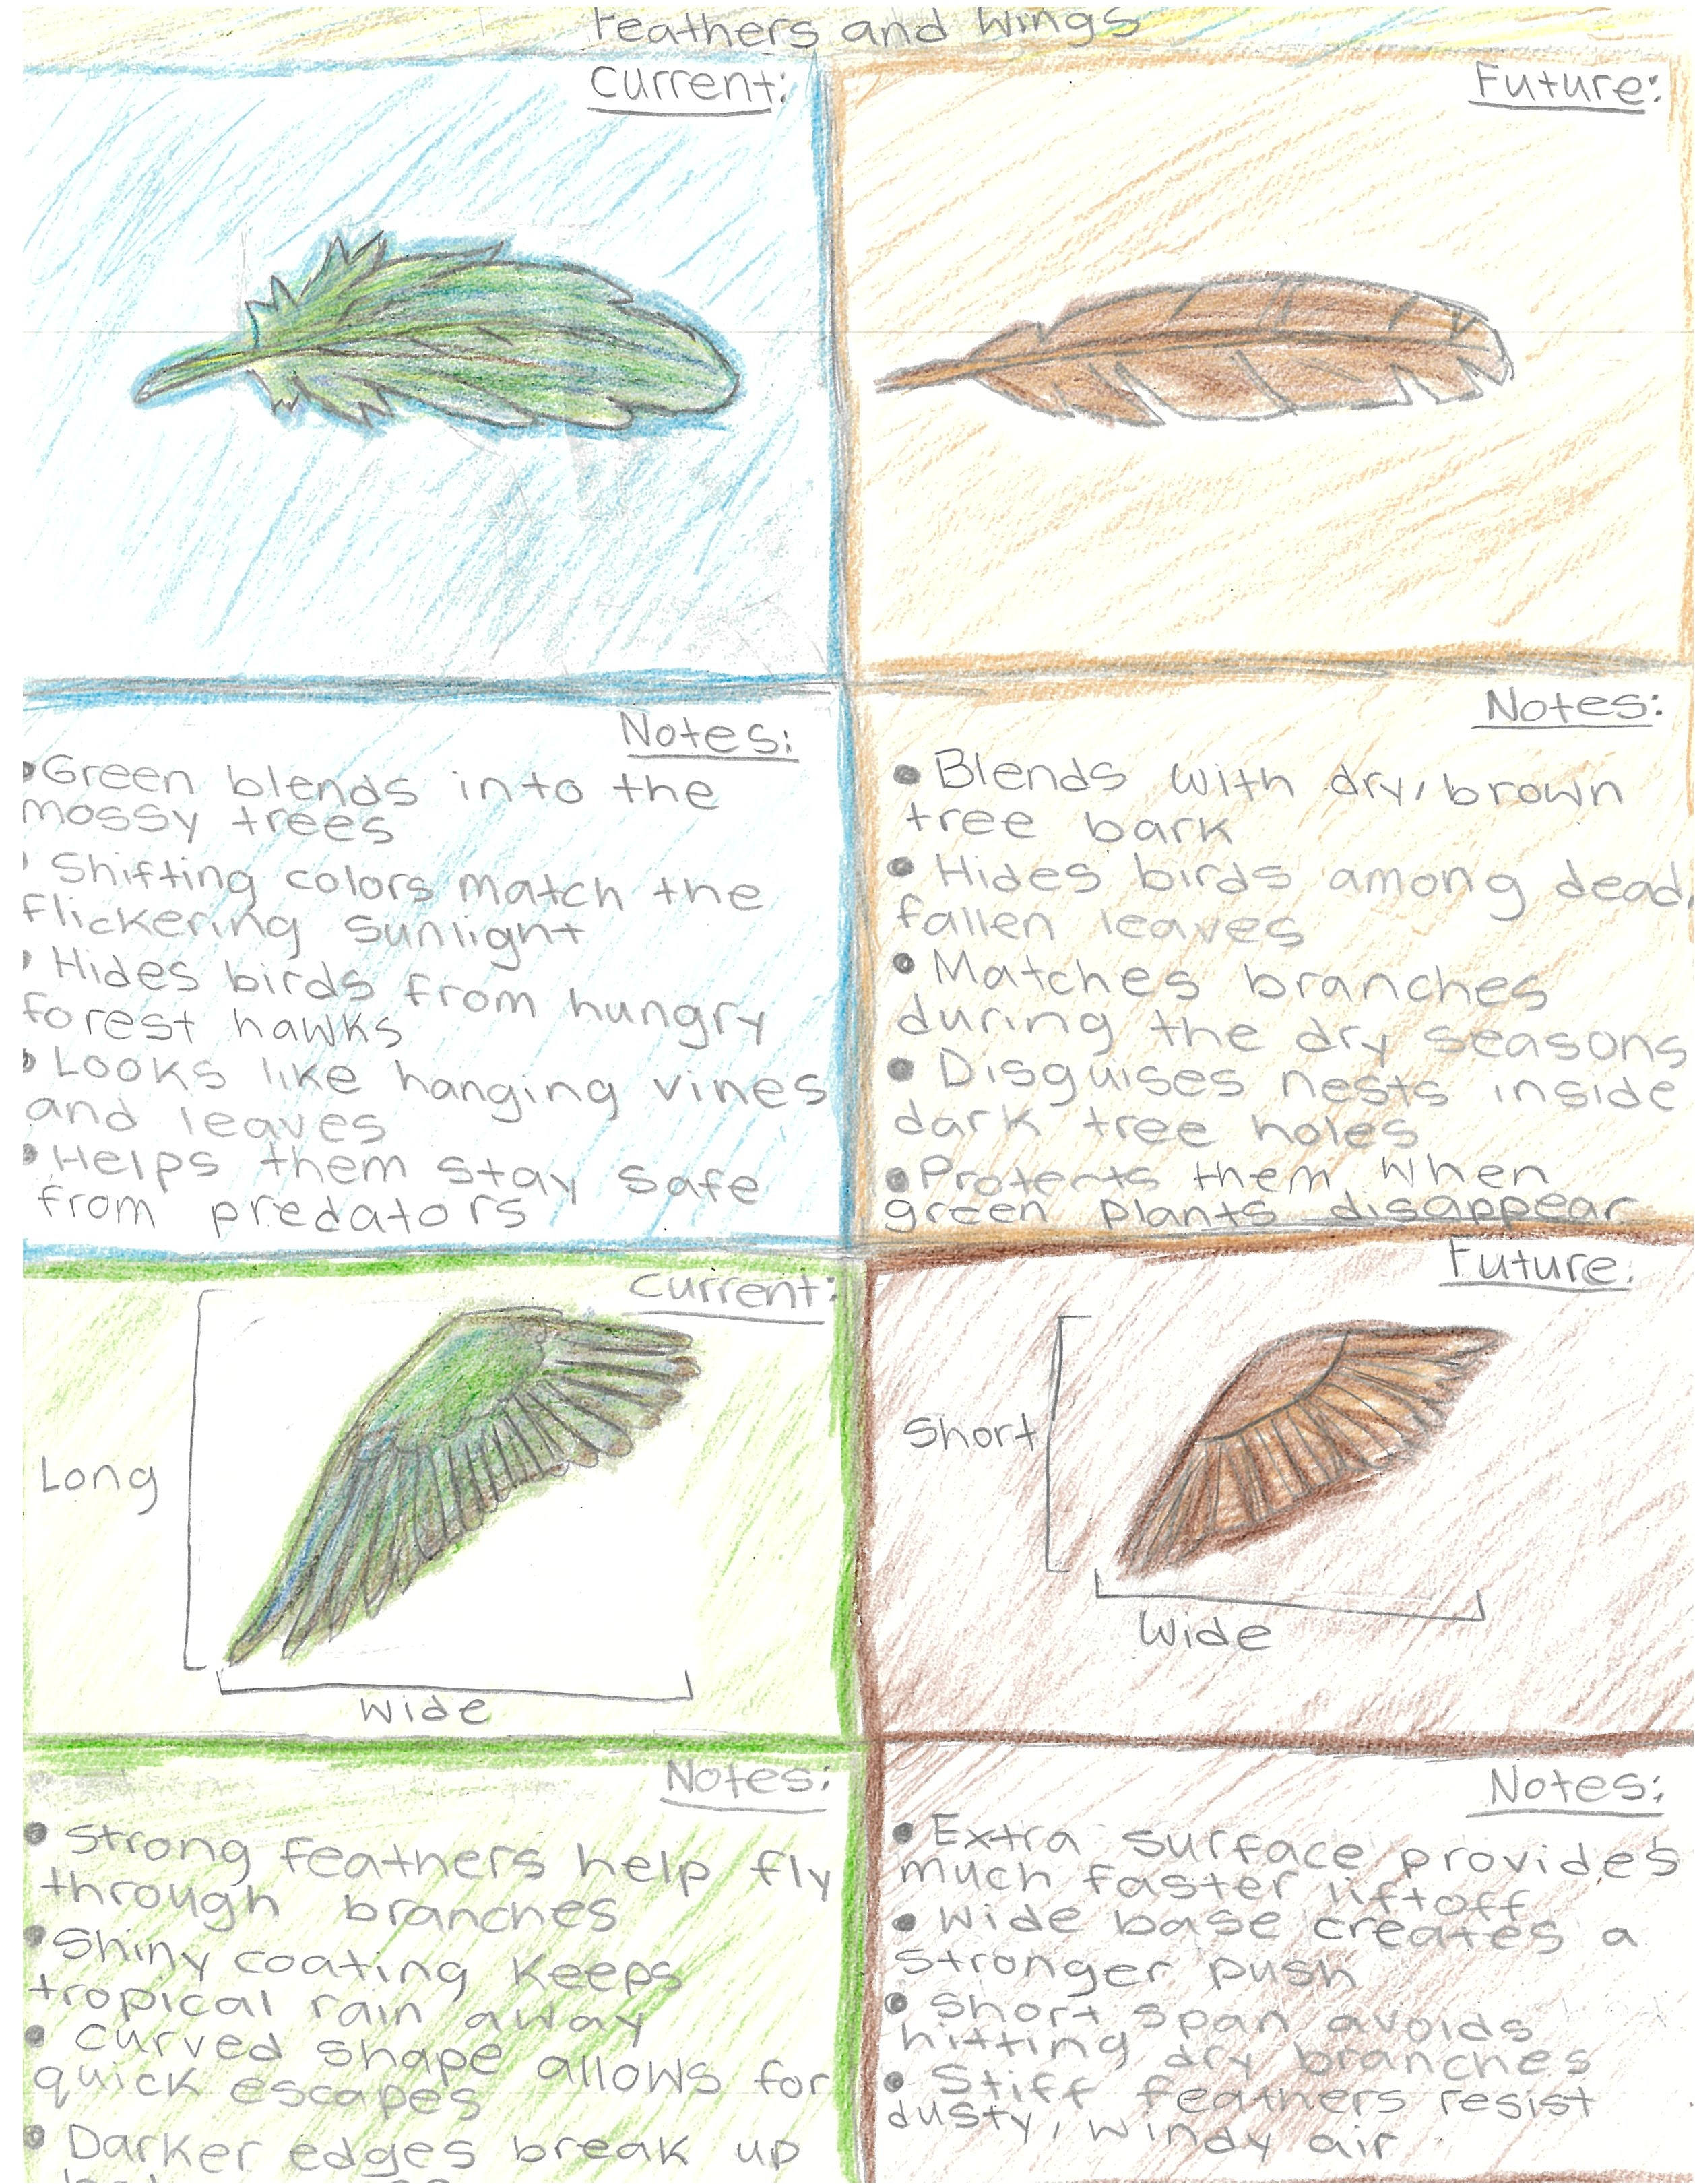 Feathers and Wings
Current:
Future:
Notes:
•Green blends into the
mossy trees
• Shifting colors match the
flickering sunlight
• Hides birds from hungry
forest hawks
• Looks like hanging vines
and leaves
• Helps them stay safe
from predators
Notes:
• Blends with dry, brown
tree bark
• Hides birds among dead,
fallen leaves
• Matches branches
during the dry seasons
• Disguises nests inside
dark tree holes
• Protects them when
green plants disappear
Current:
Long
Wide
Future:
Short
Wide
Notes:
• Strong feathers help fly
through branches
• Shiny coating keeps
tropical rain away
• Curved shape allows for
quick escapes
• Darker edges break up
Notes:
• Extra surface provides
much faster liftoff
• Wide base creates a
stronger push
• Short span avoids
hitting dry branches
• Stiff feathers resist
dusty, windy air